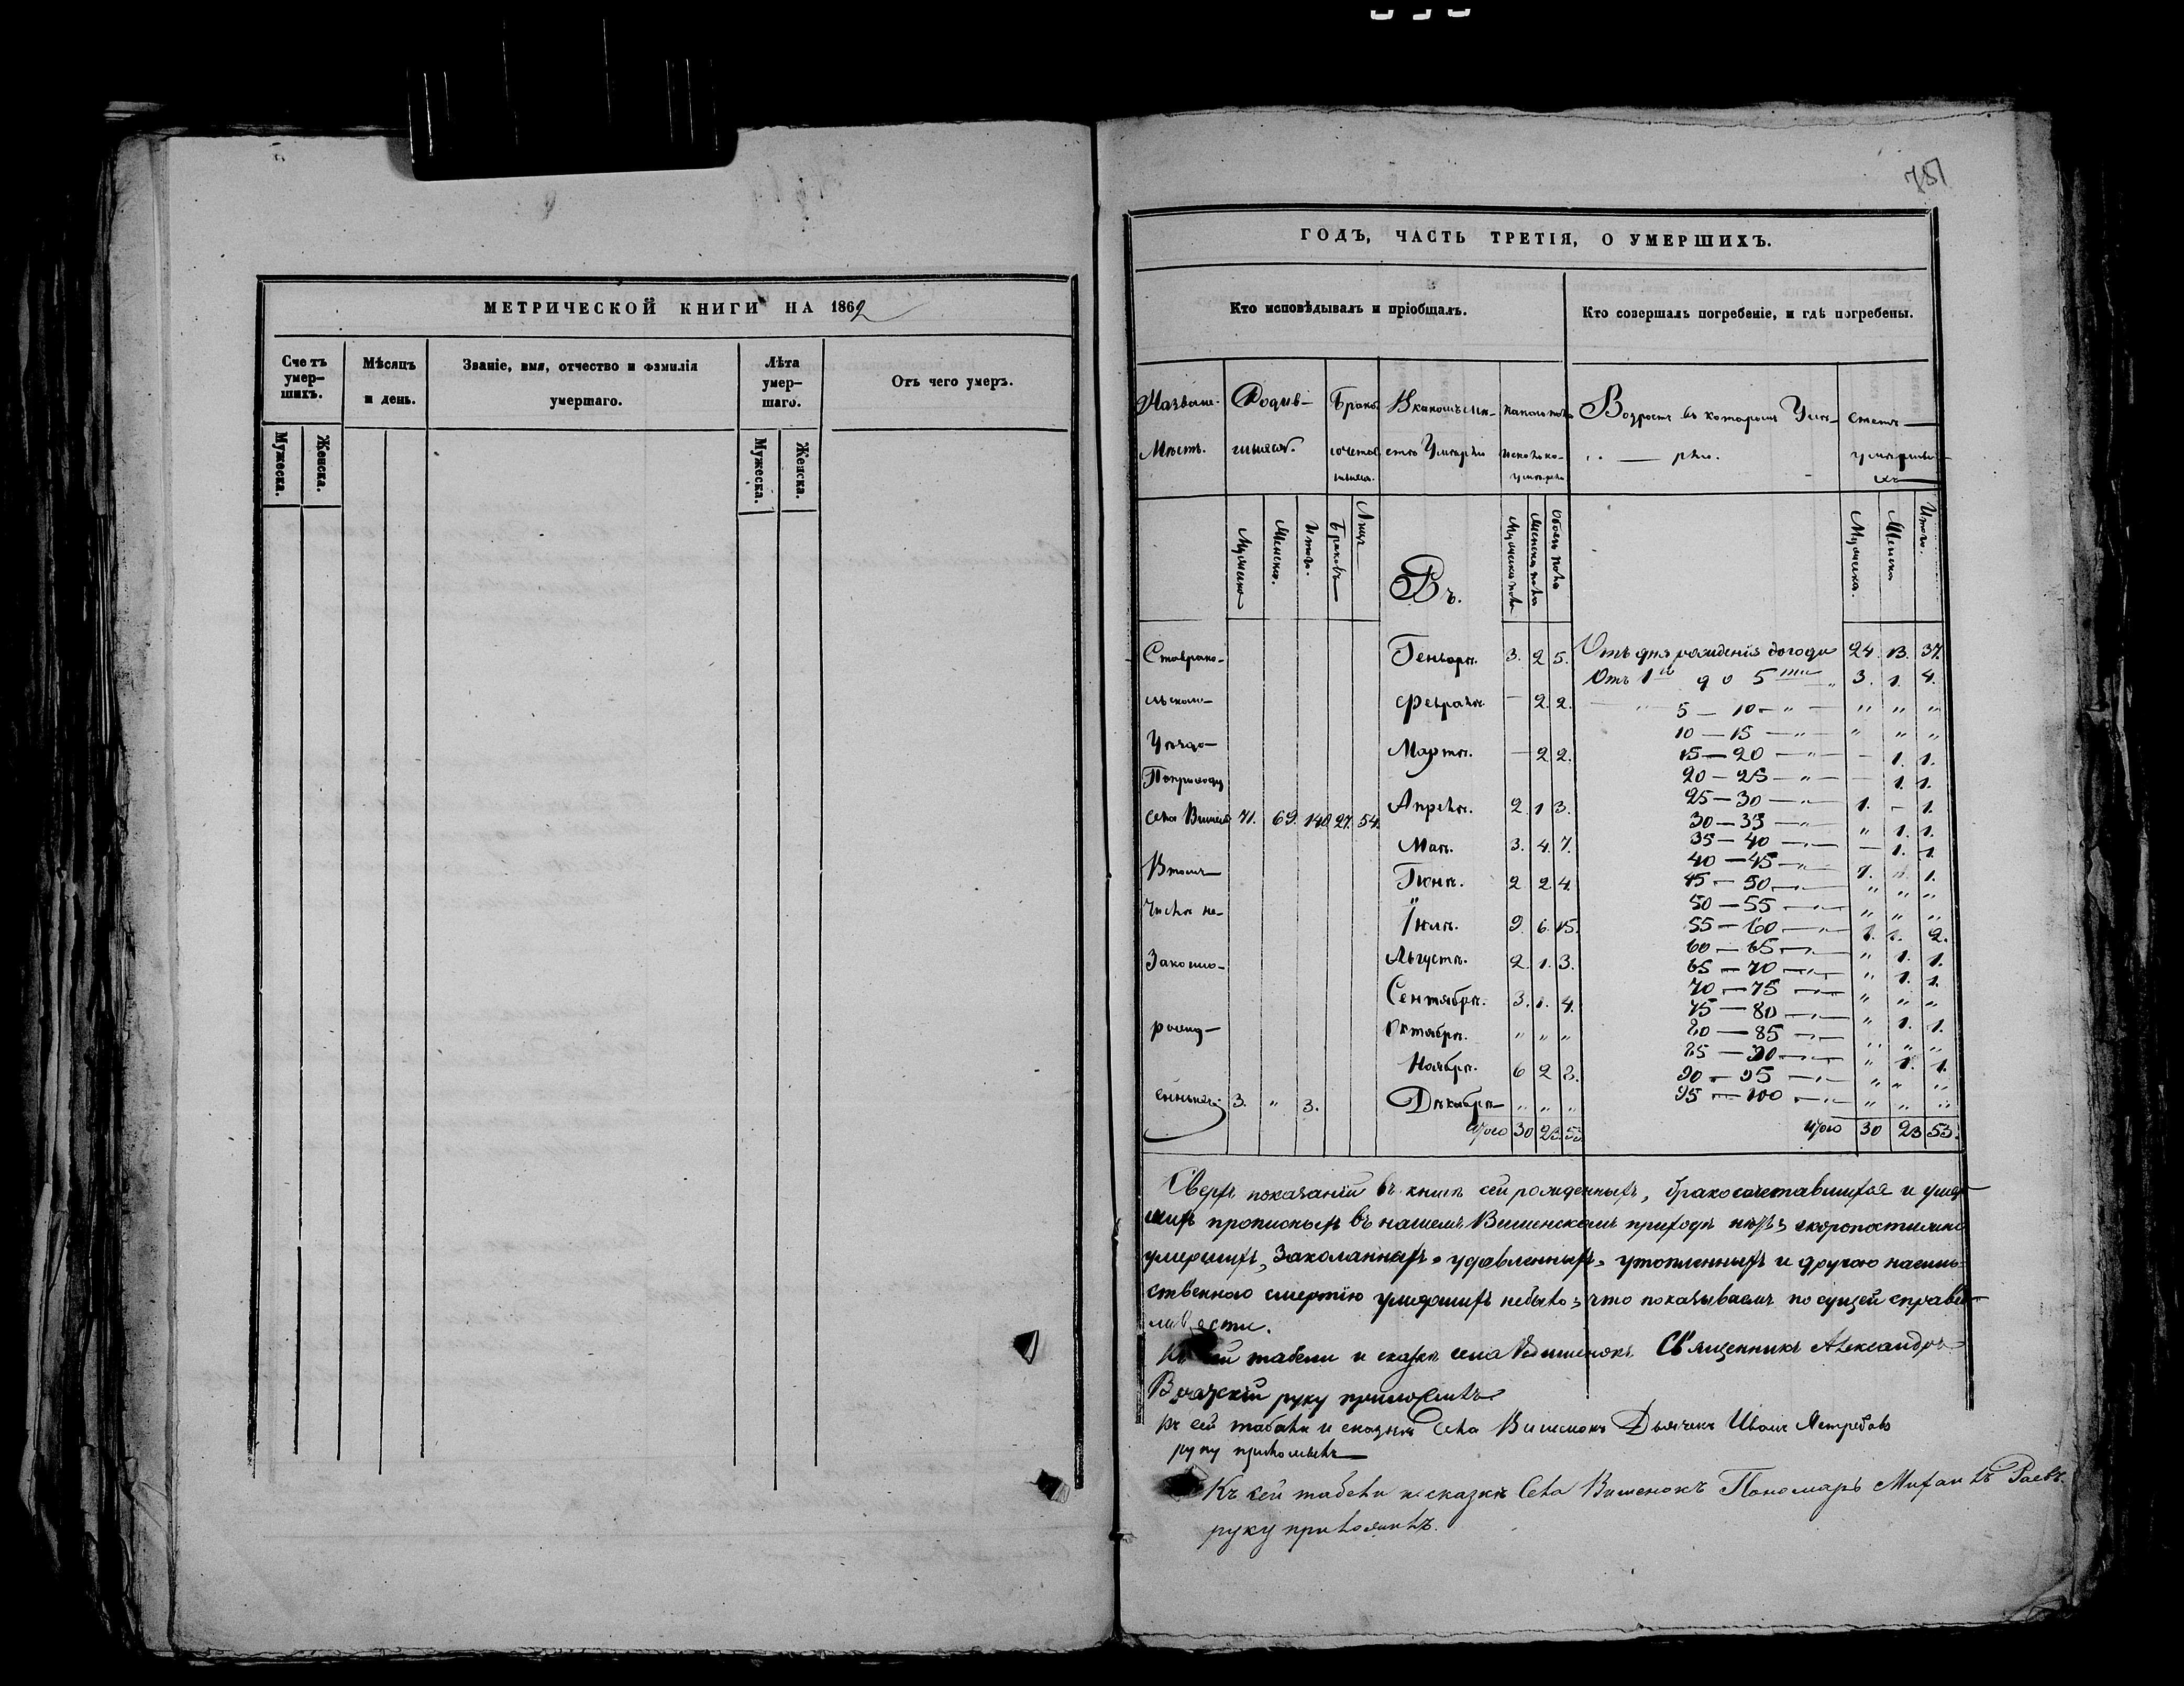 МЕТРИЧЕСКОЙ КНИГИ НА 1862
Счетъ умер-шихъ.
Мѣсяцъ и день.
Званіе, имя, отчество и фамилія умершаго.
Лѣта умер-шаго.
Отъ чего умеръ.
Мужеска. Женска.
Мужеска. Женска.
751
ГОДЪ, ЧАСТЬ ТРЕТІЯ, О УМЕРШИХЪ.
Кто исповѣдывалъ и пріобщалъ.
Кто совершалъ погребеніе, и гдѣ погребены.
Мѣстъ.
Возрастъ въ которомъ
Женска. Итого. Браковъ Лицъ
Въ.
Мужеска. Женска Итого.
Генварѣ. 3. 2 5. Отъ дня рожденія до года 24. 13. 37.
Отъ 1 го до 5 ти " 3. 1. 4.
Февралѣ. — 2. 2. 5 — 10 — " — " " "
10 — 15 — " " " "
Мартѣ. — 2 2. 15 — 20 — " — 1. 1.
По приходу 20 — 25 — " — — 1. 1.
Апрѣлѣ. 2. 1 3. 25 — 30 — " 1. — 1.
села 71. 69. 140. 27. 54. 30 — 35 — " " 1. 1.
Маѣ. 3. 4. 7. 35 — 40 — " — 1. 1.
Въ томъ 40 — 45 — " 1. " 1.
Іюнѣ. 2 2 4. 45 — 50 — " " " "
числѣ не- 50 — 55 — " " " "
Іюлѣ. 9. 6. 15. 55 — 60 — " 1. 1. 2.
60 — 65 — " " 1. 1.
Законно- Августѣ. 2. 1. 3. 65 — 70 — " " 1. 1.
Сентябрѣ. 3. 1. 4. 70 — 75 — " " " "
75 — 80 — " " 1. 1.
Октябрѣ. " " " 80 — 85 — " " " "
85 — 90 — " " 1. 1.
Ноябрѣ. 6 2 8. 90 — 95 — " " " "
3. " 3. Декабрѣ " " " 95 — 100 — " " " "
Итого 30 23. 53. Итого 30 23 53.
Сверхъ показаній въ книгѣ сей рожденныхъ, бракосочетавшихся и умер-
шихъ прописныхъ въ нашемъ Вишенскомъ приходѣ нѣтъ; скоропостижно
умершихъ, Заколанныхъ, удавленныхъ, утопленныхъ и другою насиль-
ственною смертію умершихъ небыло; что показываемъ по сущей справед-
ливости.
Къ сей табели и сказкѣ села Вишенокъ Священникъ Александръ
руку приложилъ
Къ сей табели и сказкѣ Села Вишенокъ Дьячекъ Иванъ Ястребовъ
руку приложилъ
Къ сей табели и сказкѣ Села Вишенокъ Пономарь Михаилъ Раевъ.
руку приложилъ.